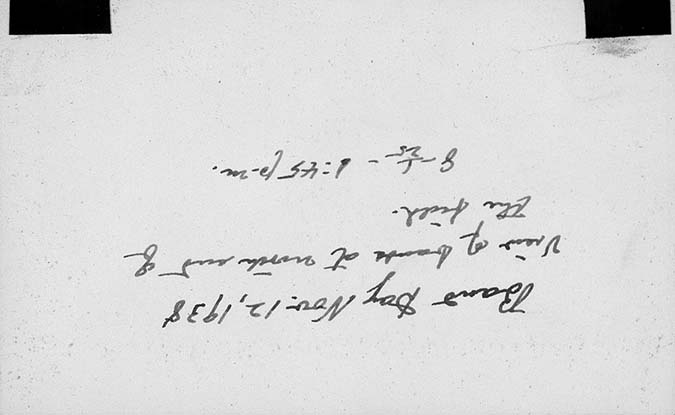 Band Day Nov. 12, 1938
View of bands at north end of
the field.
8 - 1/25 - 1:45 p.m.